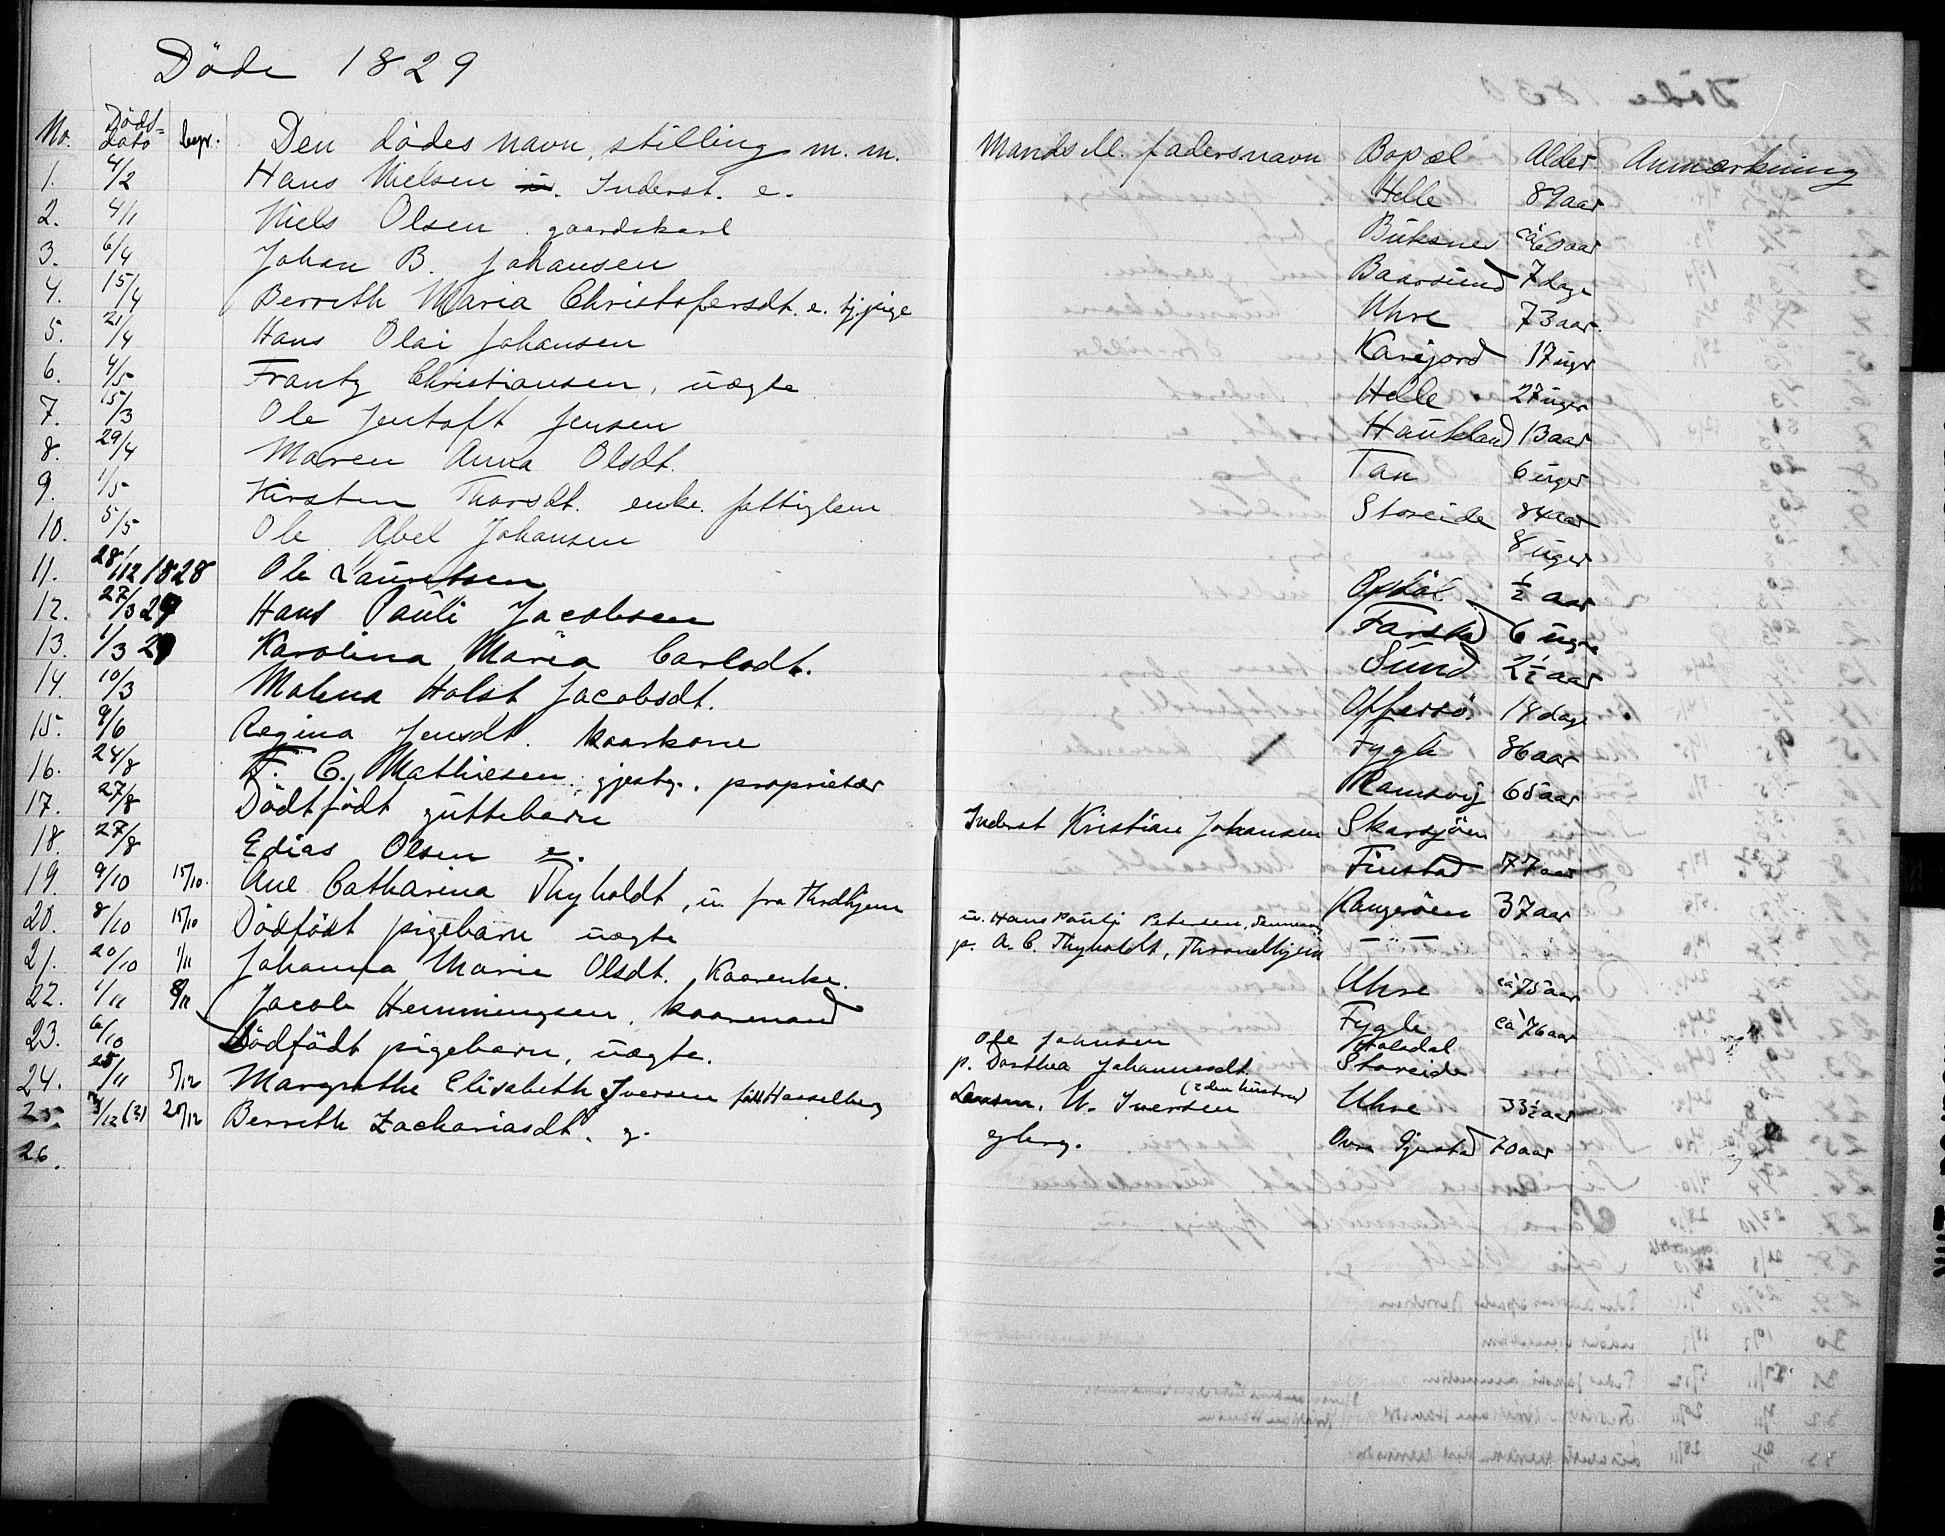 Döde 1829
No. Döds-dato begr. Den dödes navn, stilling m. m. Mands ell. fadersnavn Bopæl Alder Anmærkning
1. 4/2 Hans Nielsen Inderst. e. Helle 89 aar
2. 4/1 Niels Olsen gaardskarl Buksnes ca 60 aar
3. 6/4 Johan B. Johansen Baarsund 7 dage
4. 15/4 Berreth Maria Christofersdt. e. tj. pige Uhre 73 aar.
5. 21/4 Hans Olai Johansen Karijord 17 uger
6. 4/5 Frantz Christiansen, uægte Helle 27 uger
7. 15/3 Ole Jentoft Jensen Haukland 13 aar
8. 29/4 Maren Anna Olsdt. Tan 6 uger
9. 1/5 Kirsten Thorsdt. enke. fattiglem Storeide 84 aar
10. 5/5 Ole Abel Johansen 8 uger
11. 28/12 1828 Ole Lauretsen Opdöl ½ aar
12. 27/3 29 Hans Pauli Jacobsen Farstad 6 uger
13. 1/3 29 Karolina Maria Carlsdt. Sund 2½ aar
14. 10/3 Malena Holst Jacobsdt. Offersö 18 dage
15. 9/6 Regina Jensdt. kaarkone Fygle 86 aar
16. 24/8 F. C. Mathiesen. gjestg., proprietær Ramsvig 65 aar
17. 27/8 Dödtfödt guttebarn Inderst Kristian Johansen Skarsjöen
18. 27/8 Edias Olsen e. Finstad 77 aar
19. 9/10 15/10. Ane Catharina Thyholdt, u. fra Thrdhjem Rangeröen 37 aar
20. 8/10 15/10 Dödfödt pigebarn uægte u. Hans Pauli Petersen, p. A. C. Thyholdt, Throndhjem — " —
21. 20/10 1/11 Johanna Marie Olsdt. Kaarenke. Uhre ca 75 aar
22. 1/11 8/11 Jacob Hemmingsen. kaarmand Fygle ca 76 aar
23. 6/10 Dödfödt pigebarn, uægte. Ole Johnsen p. Dorthea Johannesdt. Storeide
24. 25/11 5/12 Margrethe Elisabeth Iversen född Hasselberg Lensm. U. Iversen (2den hustru) Uhre 33½ aar
25. 3/12 (3) 20/12 Berreth Zachariasdt. g. gbrg. Övre Gjerstad 70 aar
26.